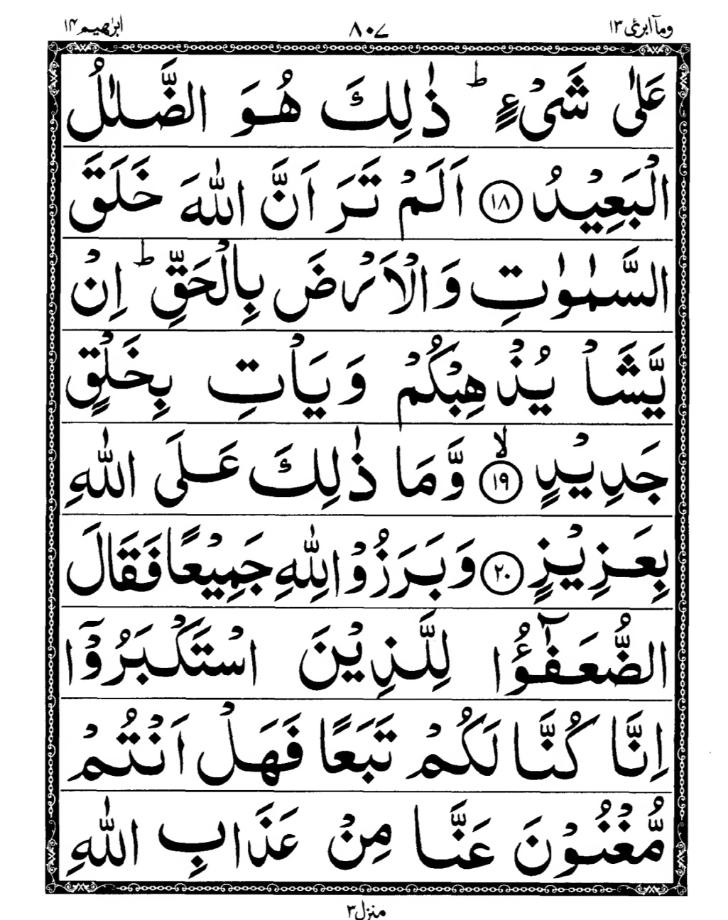 ابرٰهيم ١٤ ٨٠٧ وما ابرئ ١٣
عَلٰى شَىْءٍ ؕ ذٰلِكَ هُوَ الضَّلٰلُ
الْبَعِيْدُ ۝١٨ اَلَمْ تَرَ اَنَّ اللّٰهَ خَلَقَ
السَّمٰوٰتِ وَالْاَرْضَ بِالْحَقِّ ؕ اِنْ
يَّشَاْ يُذْهِبْكُمْ وَيَاْتِ بِخَلْقٍ
جَدِيْدٍ ۙ‏۝١٩ وَّمَا ذٰلِكَ عَلَى اللّٰهِ
بِعَزِيْزٍ ۝٢٠ وَبَرَزُوْا لِلّٰهِ جَمِيْعًا فَقَالَ
الضُّعَفٰٓؤُا لِلَّذِيْنَ اسْتَكْبَرُوْۤا
اِنَّا كُنَّا لَكُمْ تَبَعًا فَهَلْ اَنْتُمْ
مُّغْنُوْنَ عَنَّا مِنْ عَذَابِ اللّٰهِ
منزل ٣